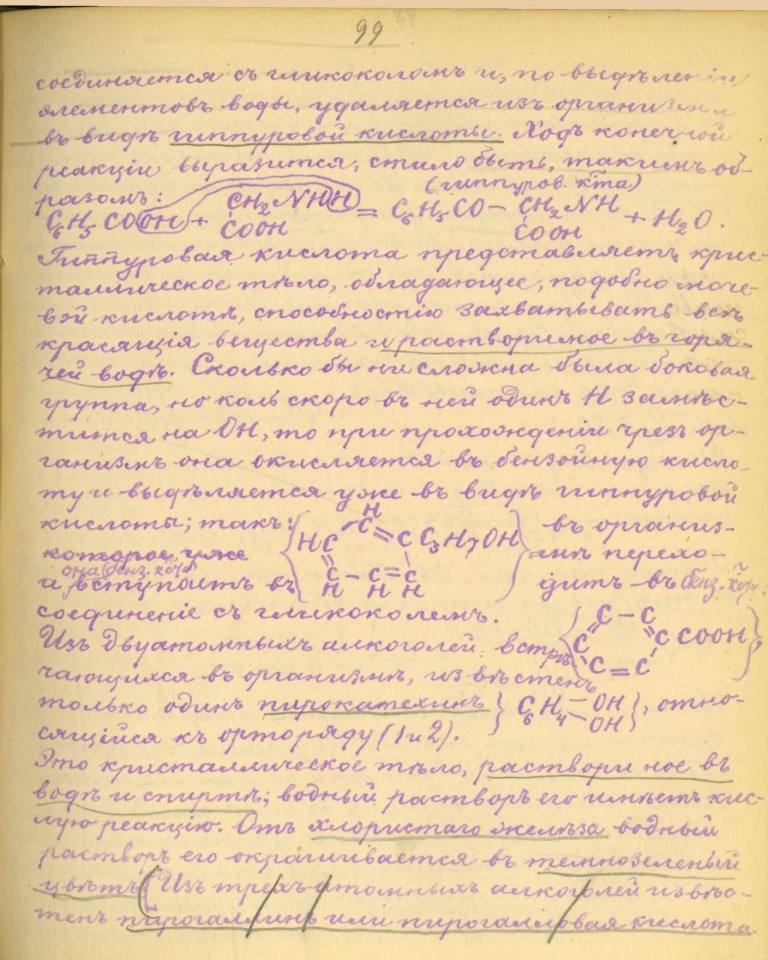 99
соединяется съ гликоколомъ и, по выдѣленіи
элементовъ воды, удаляется изъ организма
въ видѣ гиппуровой кислоты. Ходъ конечной
реакціи выразится, стало быть, такимъ об-
разомъ: (гиппуров. к̃та)
C6H5COOH + CH2NHH = C6H5CO– CH2NH + H2O.
COOH COOH
Гиппуровая кислота представляетъ крис-
таллическое тѣло, обладающее, подобно моче-
вой кислотѣ, способностію захватывать всѣ
красящія вещества и растворимое въ горя-
чей водѣ. Сколько бы ни сложна была боковая
группа, но коль скоро въ ней одинъ H замѣс-
тится на OH, то при прохожденіи чрезъ ор-
ганизмъ она окисляется въ бензойную кисло-
ту и выдѣляется уже въ видѣ гиппуровой
кислоты; такъ: { H C C C C3H7OH } въ организ-
которое уже HC C мѣ перехо-
она (бенз. к̃та)
и вступаетъ въ C – C = C дитъ въ бенз. к̃ту.
H H H
соединеніе съ гликоколемъ. { C – C
Изъ двуатомныхъ алкоголей, встрѣ- C C COOH }
чающихся въ организмѣ, извѣстенъ C = C
только одинъ пирокатехинъ } C6H4 – OH – OH }, отно-
сящійся къ орторяду (1 и 2).
Это кристаллическое тѣло, растворимое въ
водѣ и спиртѣ; водный растворъ его имѣетъ кис-
лую реакцію. Отъ хлористаго желѣза водный
растворъ его окрашивается въ темнозеленый
цвѣтъ. (Изъ трехъ-атомныхъ алкоголей извѣс-
тенъ пирогаллинъ или пирогалловая кислота.